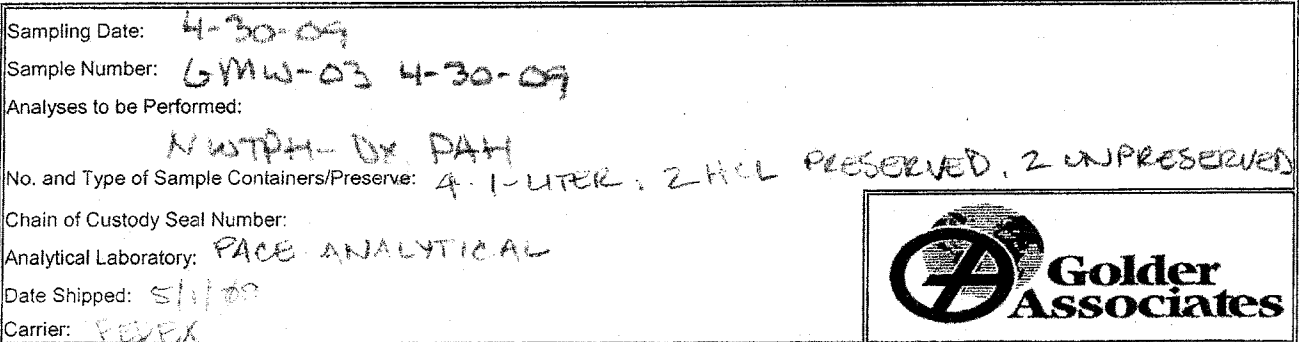 Sampling Date: 4-30-09
Sample Number: GMW-03 4-30-09
Analyses to be Performed:
NWTPH-Dx PAH
No. and Type of Sample Containers/Preserve: 4 1-LITER: 2 HCL PRESERVED, 2 UNPRESERVED
Chain of Custody Seal Number:
Analytical Laboratory: PACE ANALYTICAL
Date Shipped: 5/1/09
Carrier: FEDEX
Golder
Associates